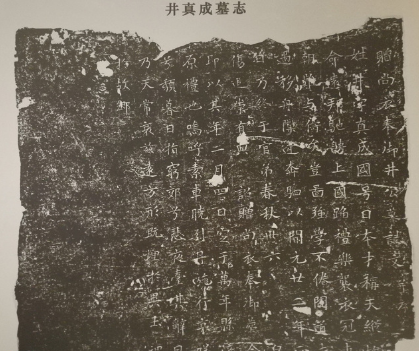 井真成墓志
贈尚衣奉御井公墓誌文并
姓井字真成國号日本才稱天縱
命遠邦馳騁上國蹈禮樂襲衣冠
朝難与儔矣豈圖強學不倦聞道
遇移舟隙逢奔駟以開元廿二年
乃終于官弟春秋卅六
傷追崇有典詔贈尚衣奉御葬令
即以其年二月四日窆于萬年縣
原禮也嗚呼素車曉引丹旐行哀
兮頹暮日指窮郊兮悲夜臺其辭曰
乃天常哀茲遠方形既埋于異土
歸于故鄉